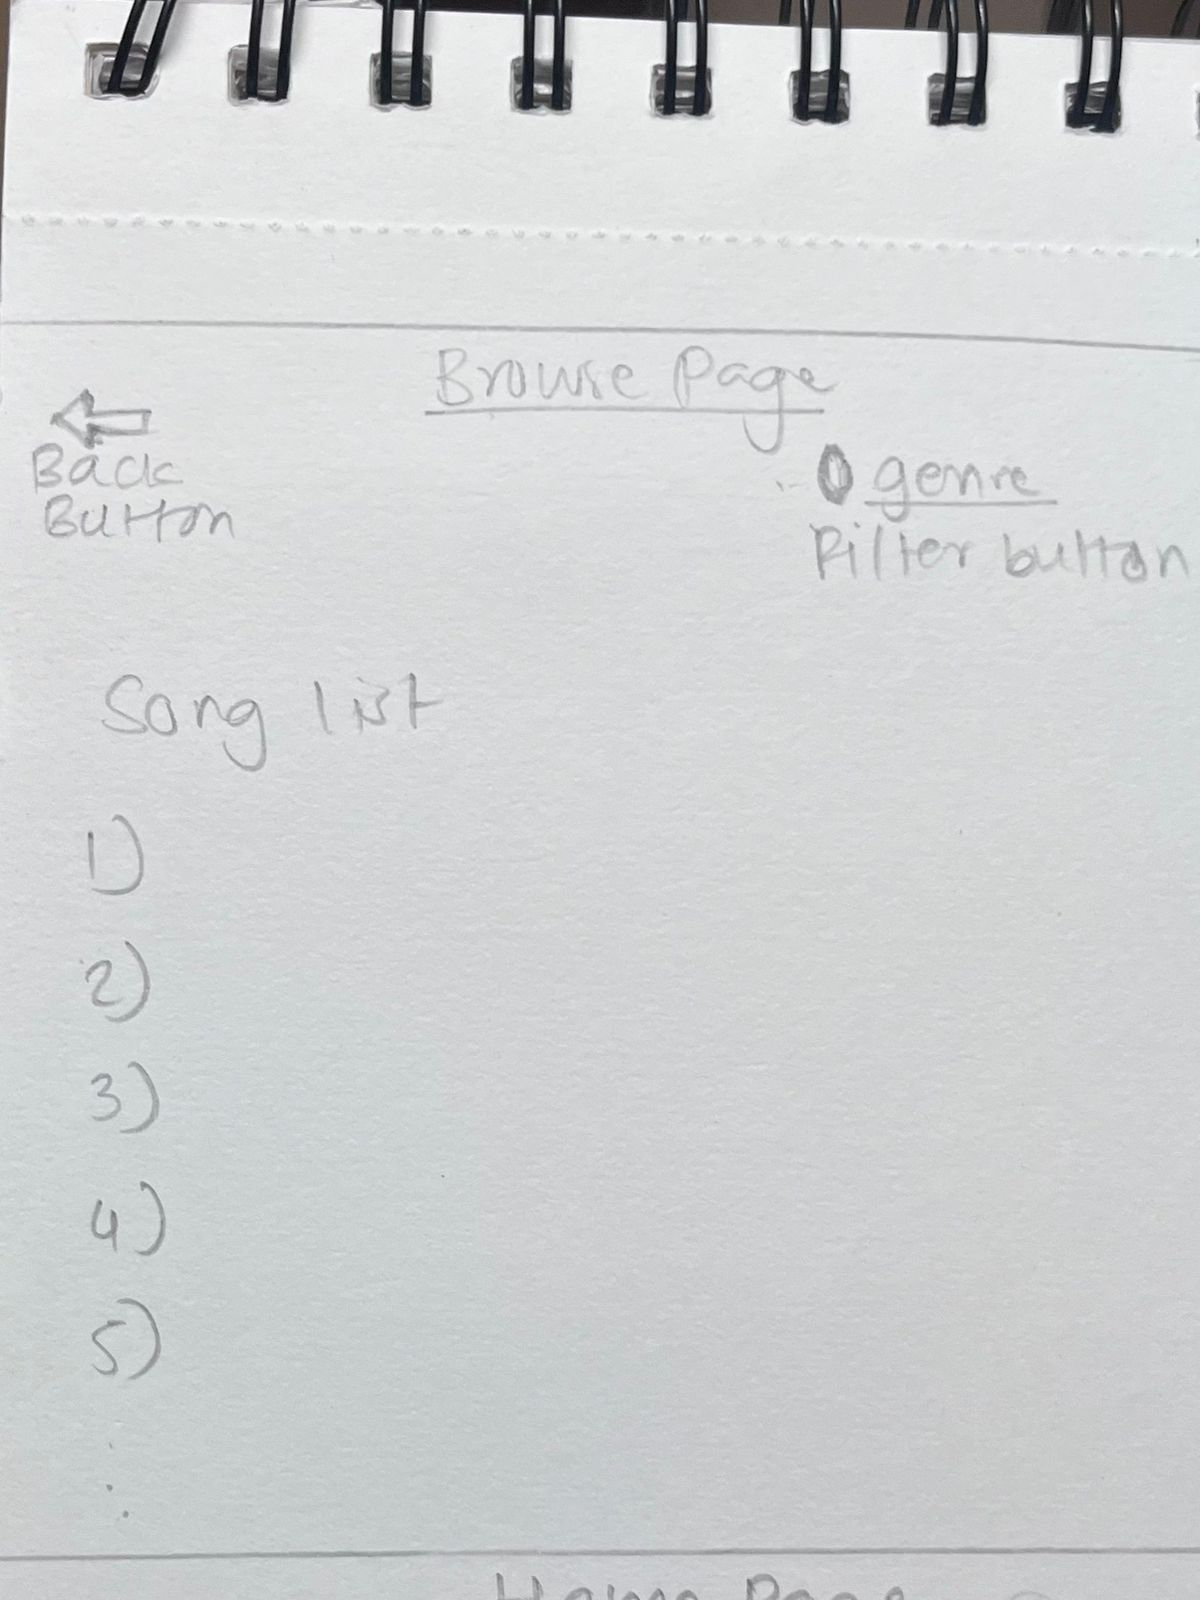 Browse Page
Back
Button
genre
Filter button
Song list
1)
2)
3)
4)
5)
Home Page